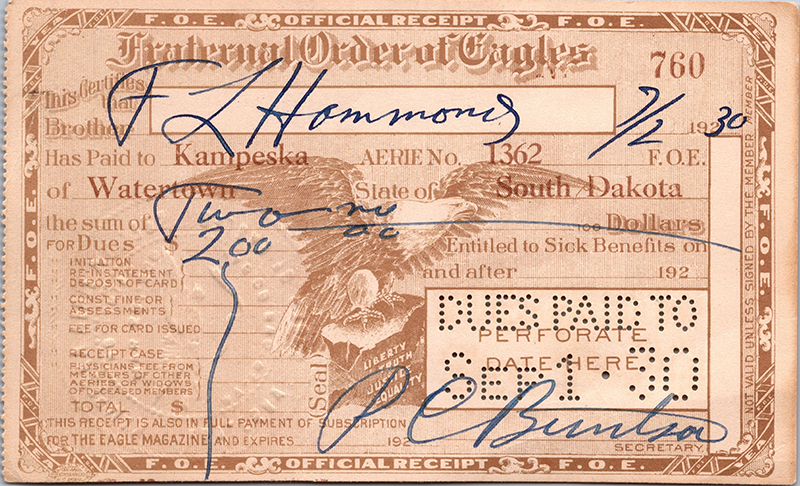 F. O. E. OFFICIAL RECEIPT F. O. E.
Fraternal Order of Eagles
No. 760
This Certifies that
Brother F L Hammond 7/2 192 30
Has Paid to Kampeska AERIE No. 1362 F.O.E.
of Watertown State of South Dakota
the sum of Two no/00 100 Dollars
FOR DUES $ 2.00 Entitled to Sick Benefits on
and after 192
INITIATION
RE-INSTATEMENT
DEPOSIT OF CARD
CONST. FINE OR
ASSESSMENTS
FEE FOR CARD ISSUED
RECEIPT CASE
PHYSICIANS FEE FROM
MEMBERS OF OTHER
AERIES OR WIDOWS
OF DECEASED MEMBERS
TOTAL $
(Seal)
LIBERTY
TRUTH
JUSTICE
EQUALITY
DUES PAID TO
PERFORATE
DATE HERE
SEP 1 · 30
THIS RECEIPT IS ALSO IN FULL PAYMENT OF SUBSCRIPTION
FOR THE EAGLE MAGAZINE AND EXPIRES 192
SECRETARY.
NOT VALID UNLESS SIGNED BY THE MEMBER
MEMBER
F. O. E.
F. O. E.
F. O. E.
F. O. E. OFFICIAL RECEIPT F. O. E.